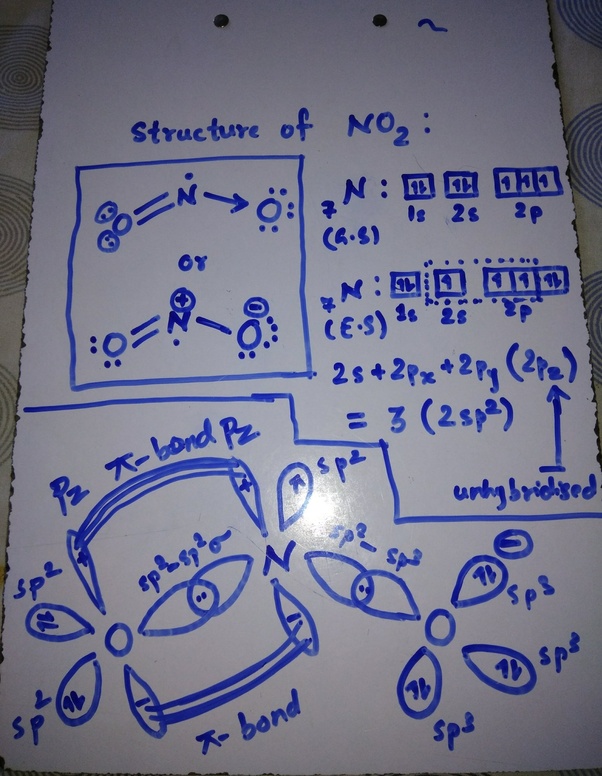 ~
Structure of NO2:
N
O = N → O
or
O = N⊕ — O⊖
7N: ⇅ ⇅ ↑ ↑ ↑
1s 2s 2p
(G.S)
7N: ⇅ ↑ ↑ ↑ ⇅
1s 2s 2p
(E.S)
2s + 2px + 2py (2pz)
= 3 (2sp2)
unhybridised
π-bond
Pz
Pz
sp2
sp2-sp2 σ
sp2-sp3
sp2
sp2
N
O
O
+
+
-
-
⊖
sp3
sp3
sp3
π-bond